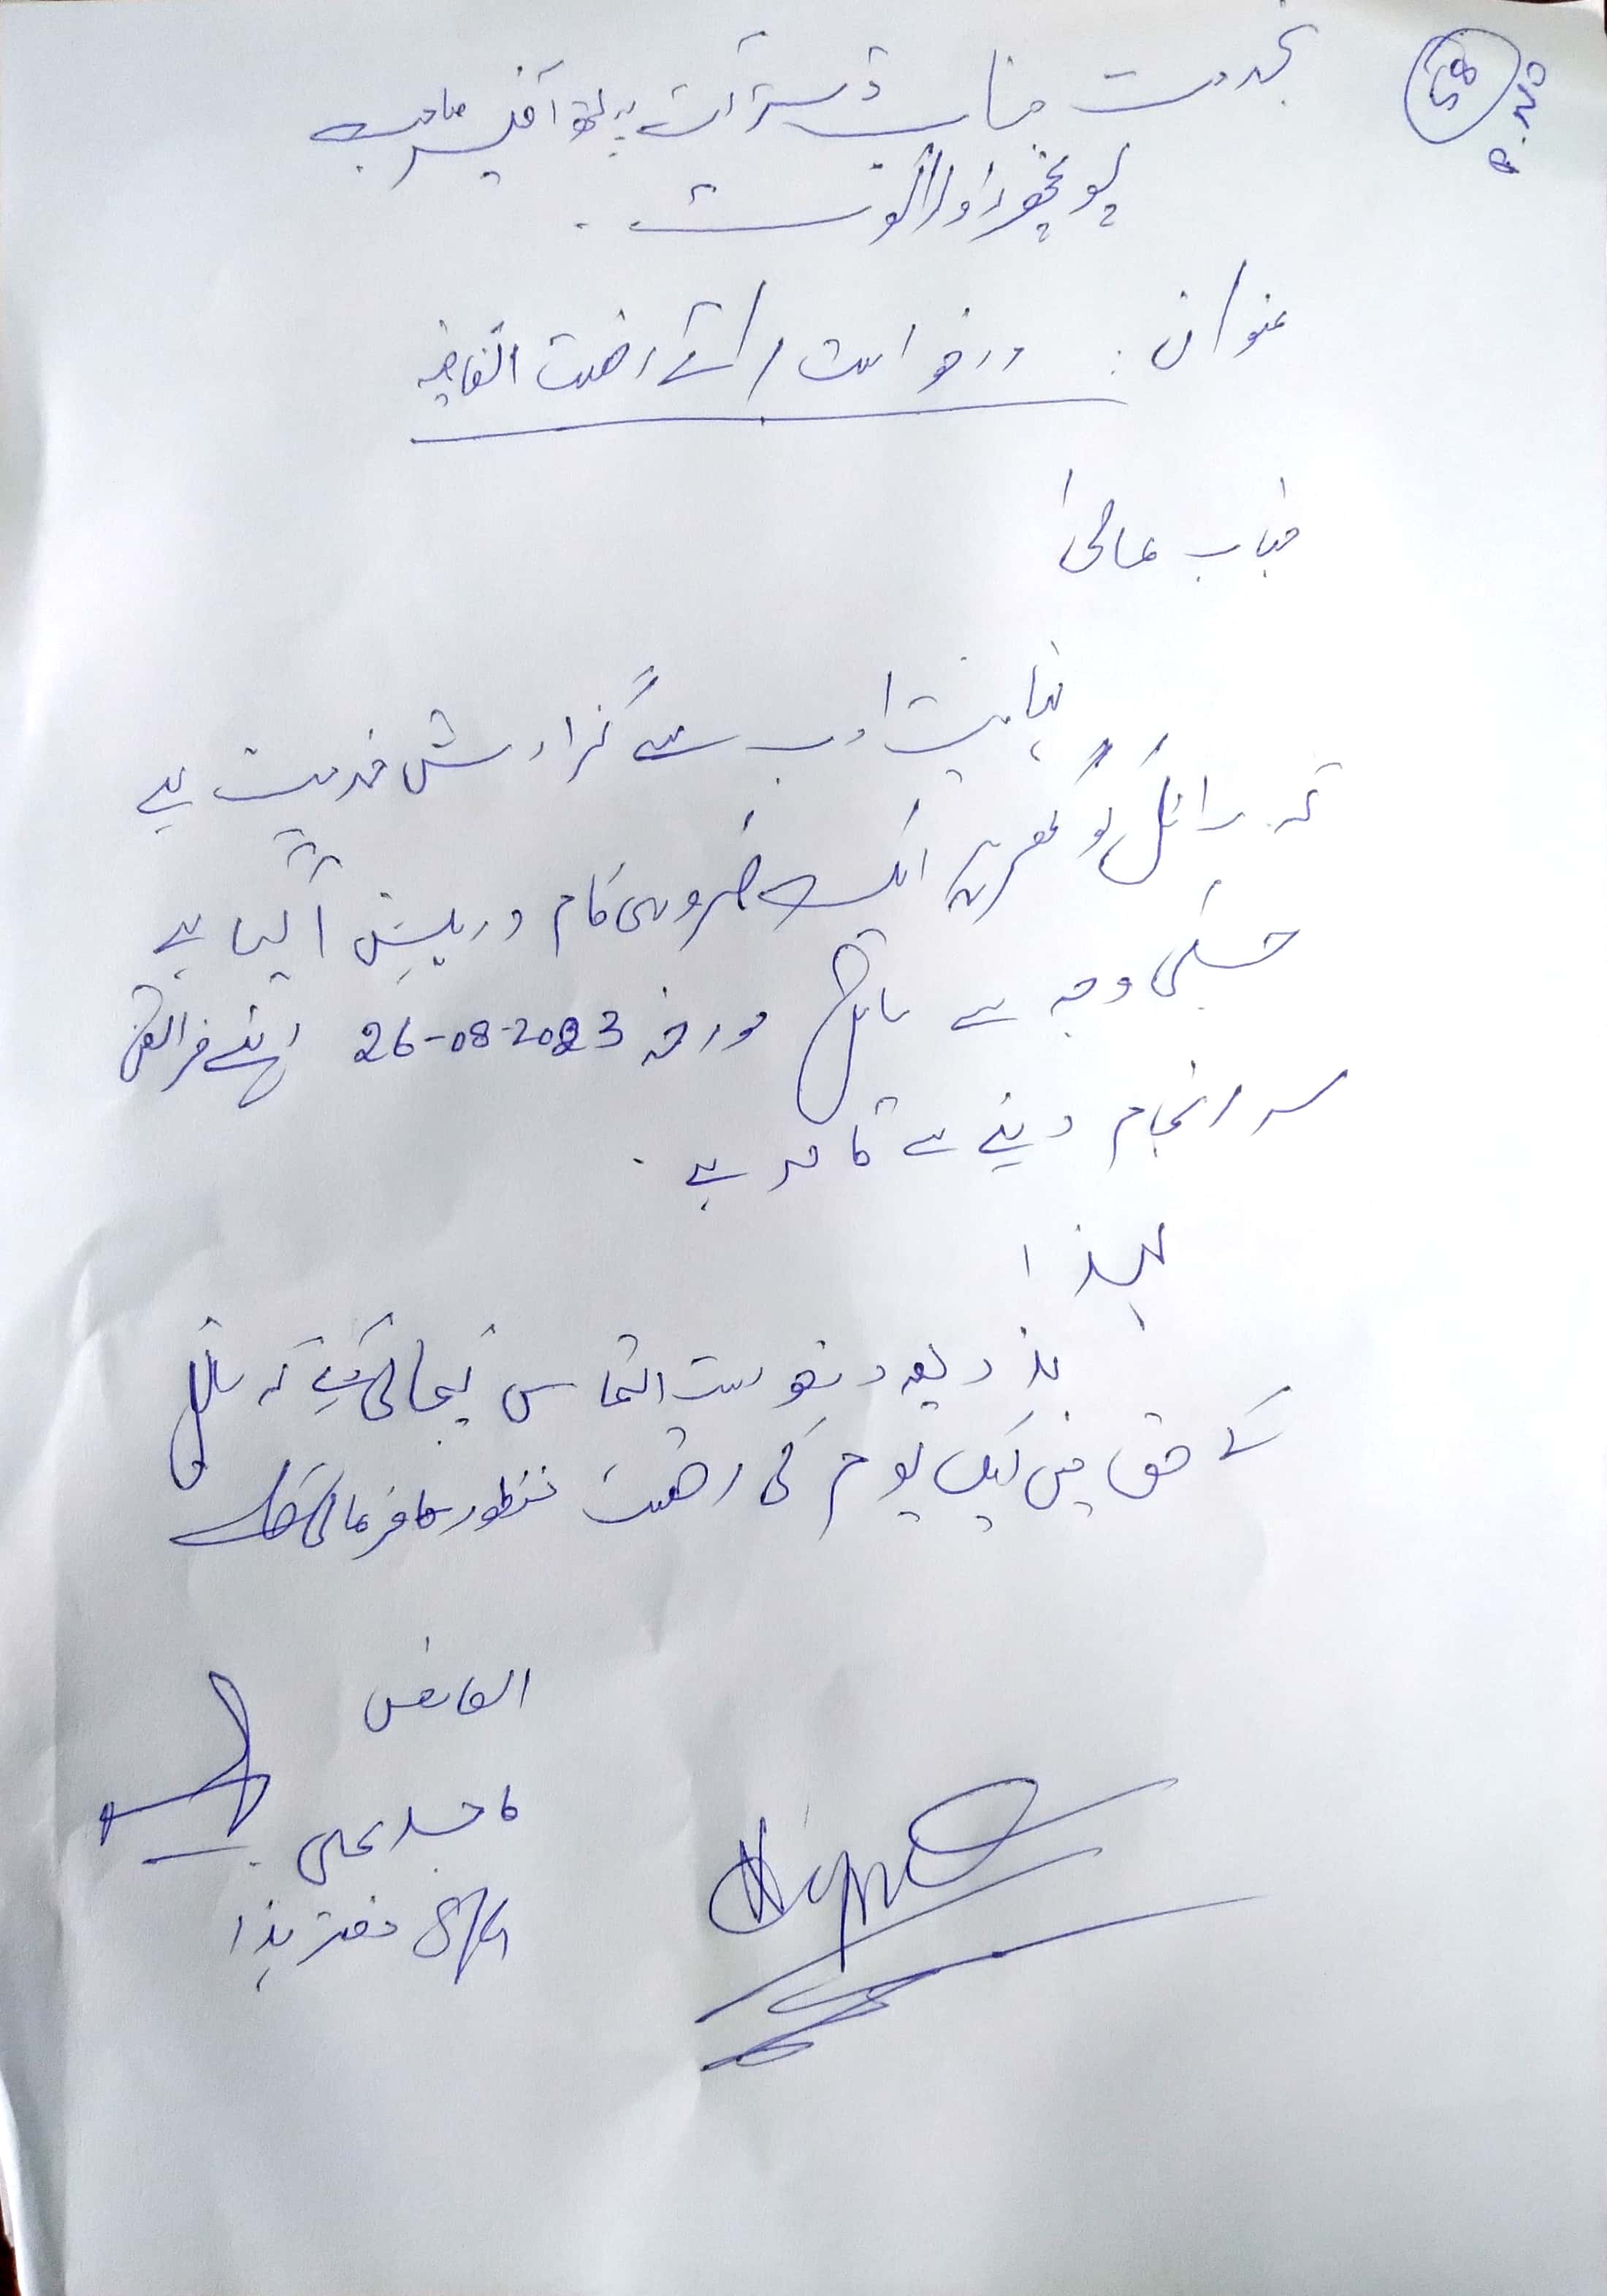 P.NO 58
بخدمت جناب ڈسٹرکٹ ہیلتھ آفیسر صاحب
پونچھ راولاکوٹ
عنوان: درخواست برائے رخصت اتفاقیہ
جناب عالی!
نہایت ادب سے گزارش خدمت ہے
کہ سائل کو گھر پر ایک ضروری کام درپیش آ گیا ہے
جسکی وجہ سے سائل مورخہ 26-08-2023 اپنے فرائض
سرانجام دینے سے قاصر ہے
لہذا
بذریعہ درخوست التماس کیجاتی ہے کہ سائل
کے حق میں ایک یوم کی رخصت منظور فرمائی جائے
العارض
علی
دفتر ہذا